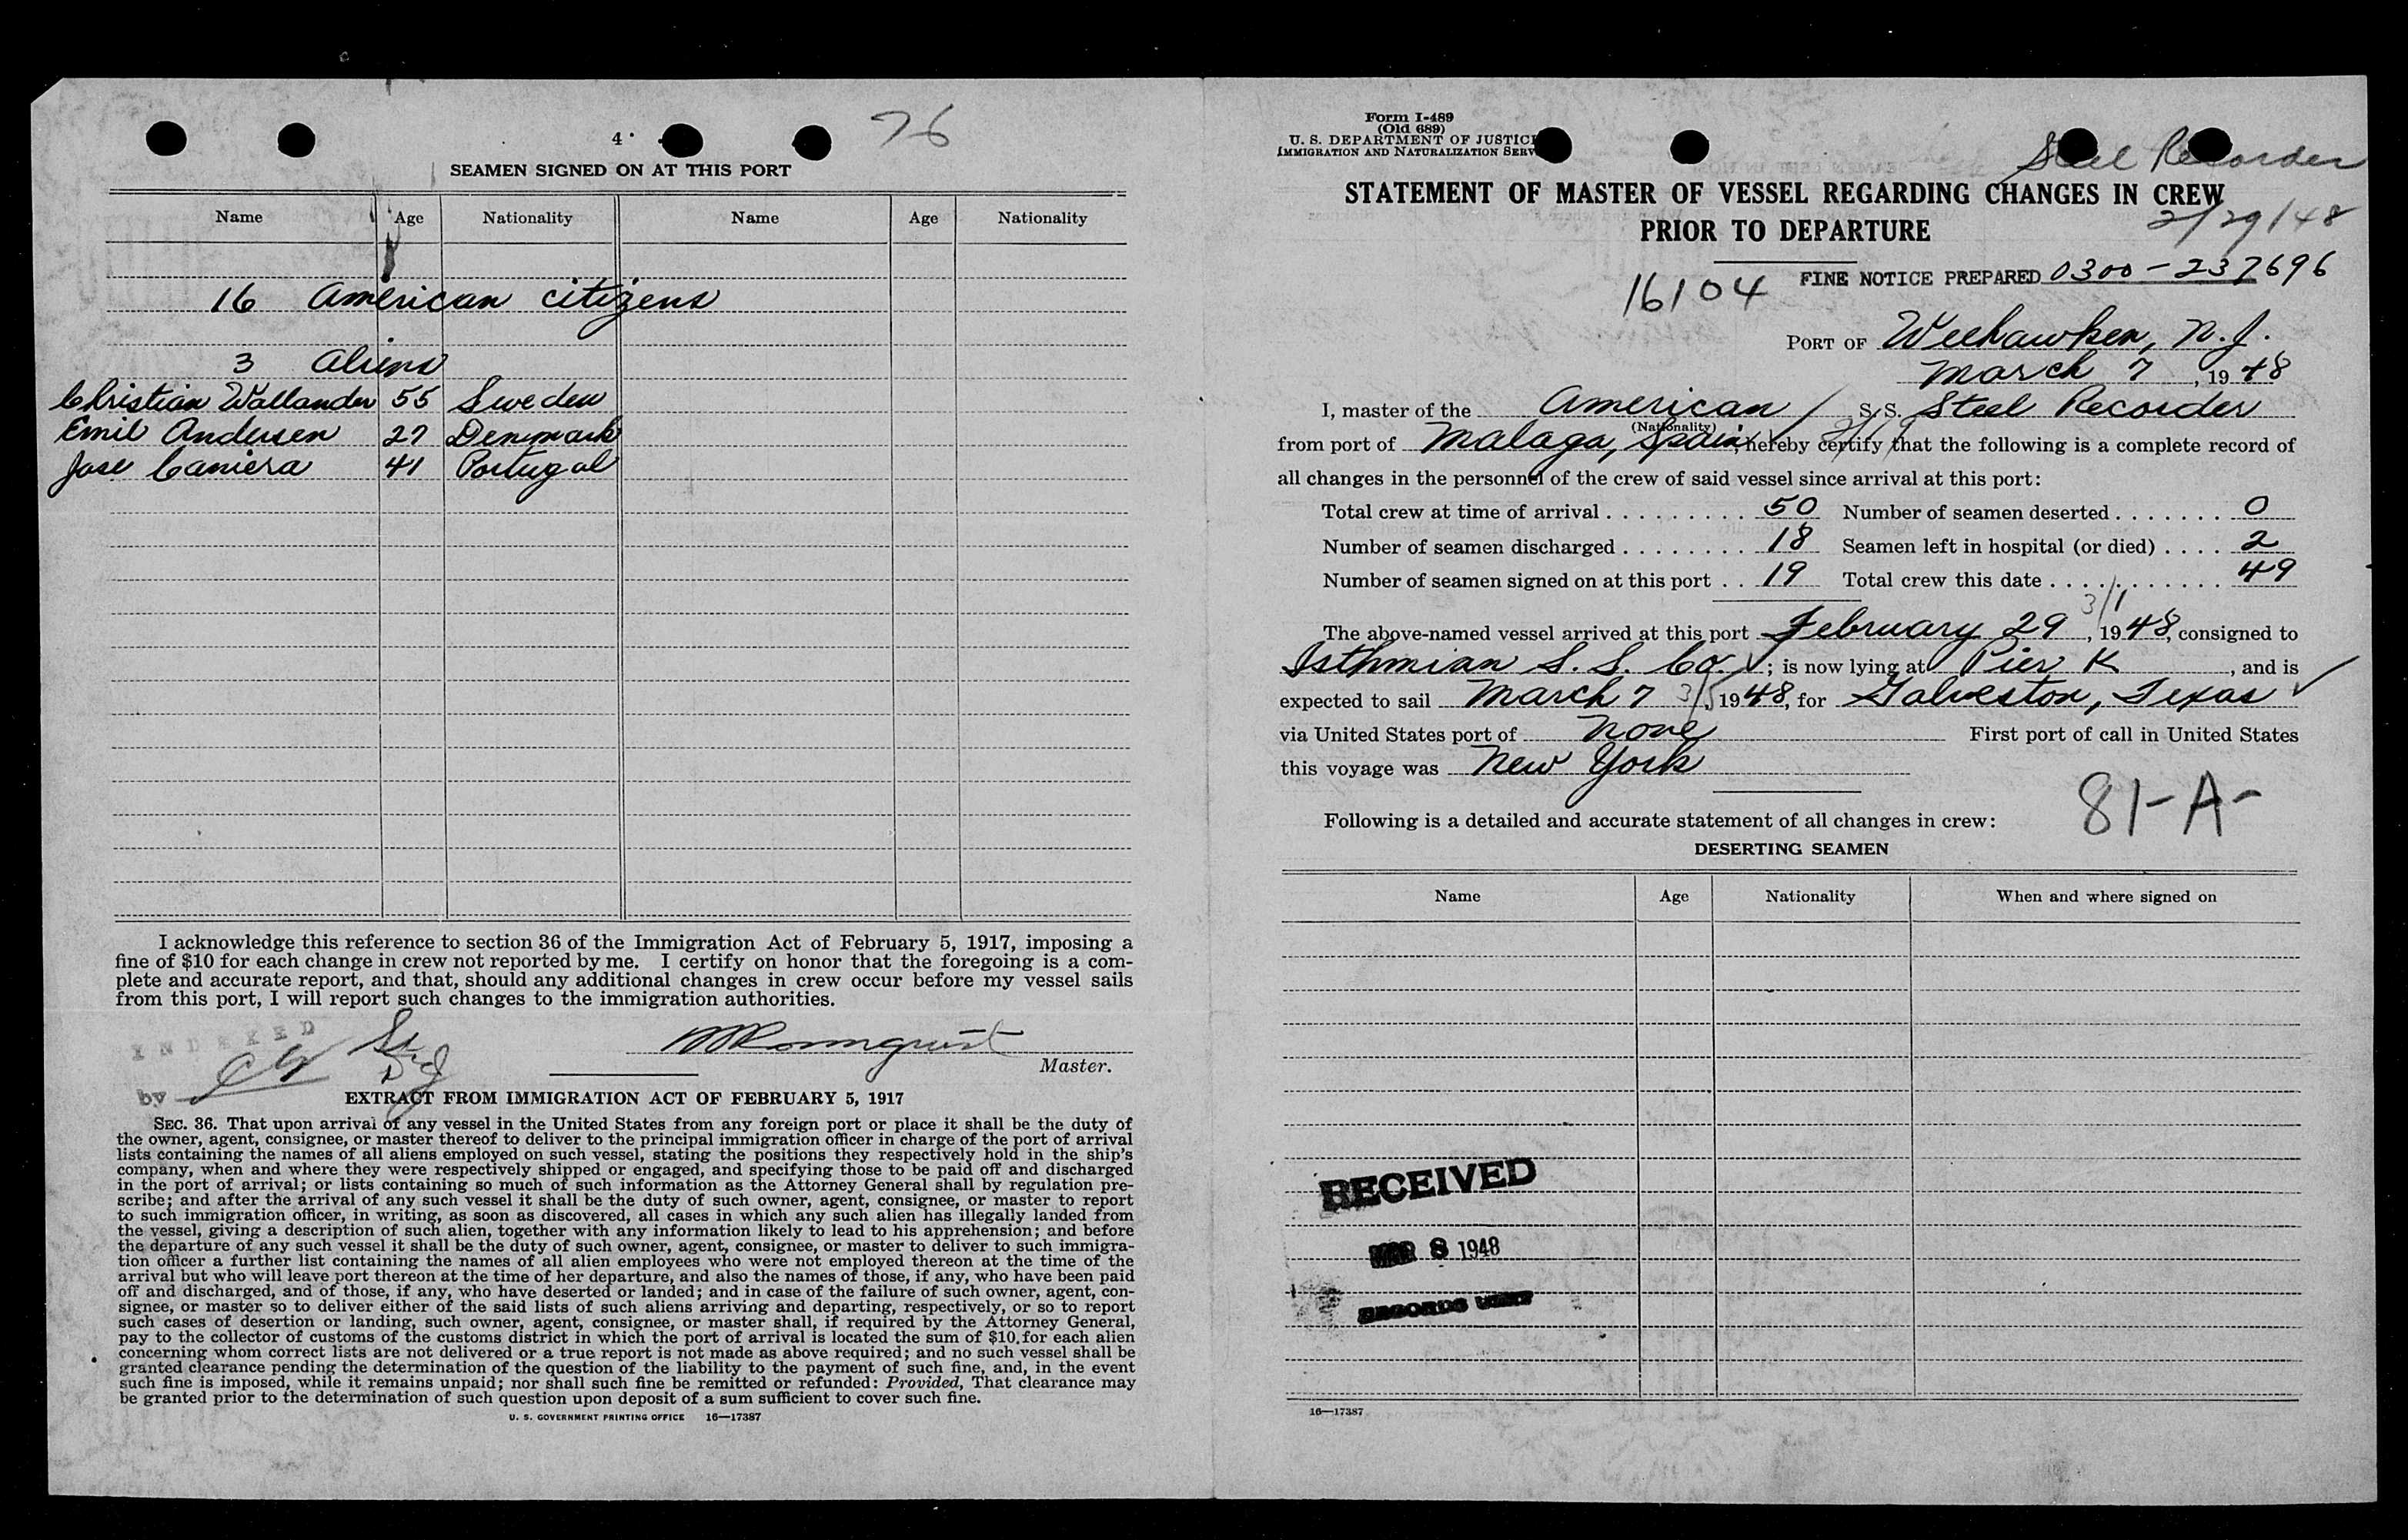 4
76
SEAMEN SIGNED ON AT THIS PORT
Name Age Nationality Name Age Nationality
16 American citizens
3 Aliens
Christian Wallander 55 Sweden
Emil Andersen 27 Denmark
Jose Caniera 41 Portugal
I acknowledge this reference to section 36 of the Immigration Act of February 5, 1917, imposing a
fine of $10 for each change in crew not reported by me. I certify on honor that the foregoing is a com-
plete and accurate report, and that, should any additional changes in crew occur before my vessel sails
from this port, I will report such changes to the immigration authorities.
INDEXED
by
Master.
EXTRACT FROM IMMIGRATION ACT OF FEBRUARY 5, 1917
SEC. 36. That upon arrival of any vessel in the United States from any foreign port or place it shall be the duty of
the owner, agent, consignee, or master thereof to deliver to the principal immigration officer in charge of the port of arrival
lists containing the names of all aliens employed on such vessel, stating the positions they respectively hold in the ship's
company, when and where they were respectively shipped or engaged, and specifying those to be paid off and discharged
in the port of arrival; or lists containing so much of such information as the Attorney General shall by regulation pre-
scribe; and after the arrival of any such vessel it shall be the duty of such owner, agent, consignee, or master to report
to such immigration officer, in writing, as soon as discovered, all cases in which any such alien has illegally landed from
the vessel, giving a description of such alien, together with any information likely to lead to his apprehension; and before
the departure of any such vessel it shall be the duty of such owner, agent, consignee, or master to deliver to such immigra-
tion officer a further list containing the names of all alien employees who were not employed thereon at the time of the
arrival but who will leave port thereon at the time of her departure, and also the names of those, if any, who have been paid
off and discharged, and of those, if any, who have deserted or landed; and in case of the failure of such owner, agent, con-
signee, or master so to deliver either of the said lists of such aliens arriving and departing, respectively, or so to report
such cases of desertion or landing, such owner, agent, consignee, or master shall, if required by the Attorney General,
pay to the collector of customs of the customs district in which the port of arrival is located the sum of $10 for each alien
concerning whom correct lists are not delivered or a true report is not made as above required; and no such vessel shall be
granted clearance pending the determination of the question of the liability to the payment of such fine, and, in the event
such fine is imposed, while it remains unpaid; nor shall such fine be remitted or refunded: Provided, That clearance may
be granted prior to the determination of such question upon deposit of a sum sufficient to cover such fine.
U. S. GOVERNMENT PRINTING OFFICE 16—17387
Form I-489
(Old 689)
U. S. DEPARTMENT OF JUSTIC
IMMIGRATION AND NATURALIZATION SERV
Steel Recorder
STATEMENT OF MASTER OF VESSEL REGARDING CHANGES IN CREW
PRIOR TO DEPARTURE
2/29/48
16104 FINE NOTICE PREPARED 0300-237696
PORT OF Weehawken, N.J.
March 7, 1948
I, master of the American S/S. Steel Recorder
(Nationality)
from port of Malaga, Spain, hereby certify that the following is a complete record of
all changes in the personnel of the crew of said vessel since arrival at this port:
Total crew at time of arrival . . . . . . . . . 50 Number of seamen deserted . . . . . . . 0
Number of seamen discharged . . . . . . . . 18 Seamen left in hospital (or died) . . . . 2
Number of seamen signed on at this port . . 19 Total crew this date . . . . . . . . . . . 49
3/1
The above-named vessel arrived at this port February 29, 1948, consigned to
Isthmian S. S. Co. ; is now lying at Pier K, and is
expected to sail March 7 3/5, 1948, for Galveston, Texas
via United States port of None First port of call in United States
this voyage was New York
81-A-
Following is a detailed and accurate statement of all changes in crew:
DESERTING SEAMEN
Name Age Nationality When and where signed on
RECEIVED
MAR 8 1948
RECORDS UNIT
16—17387